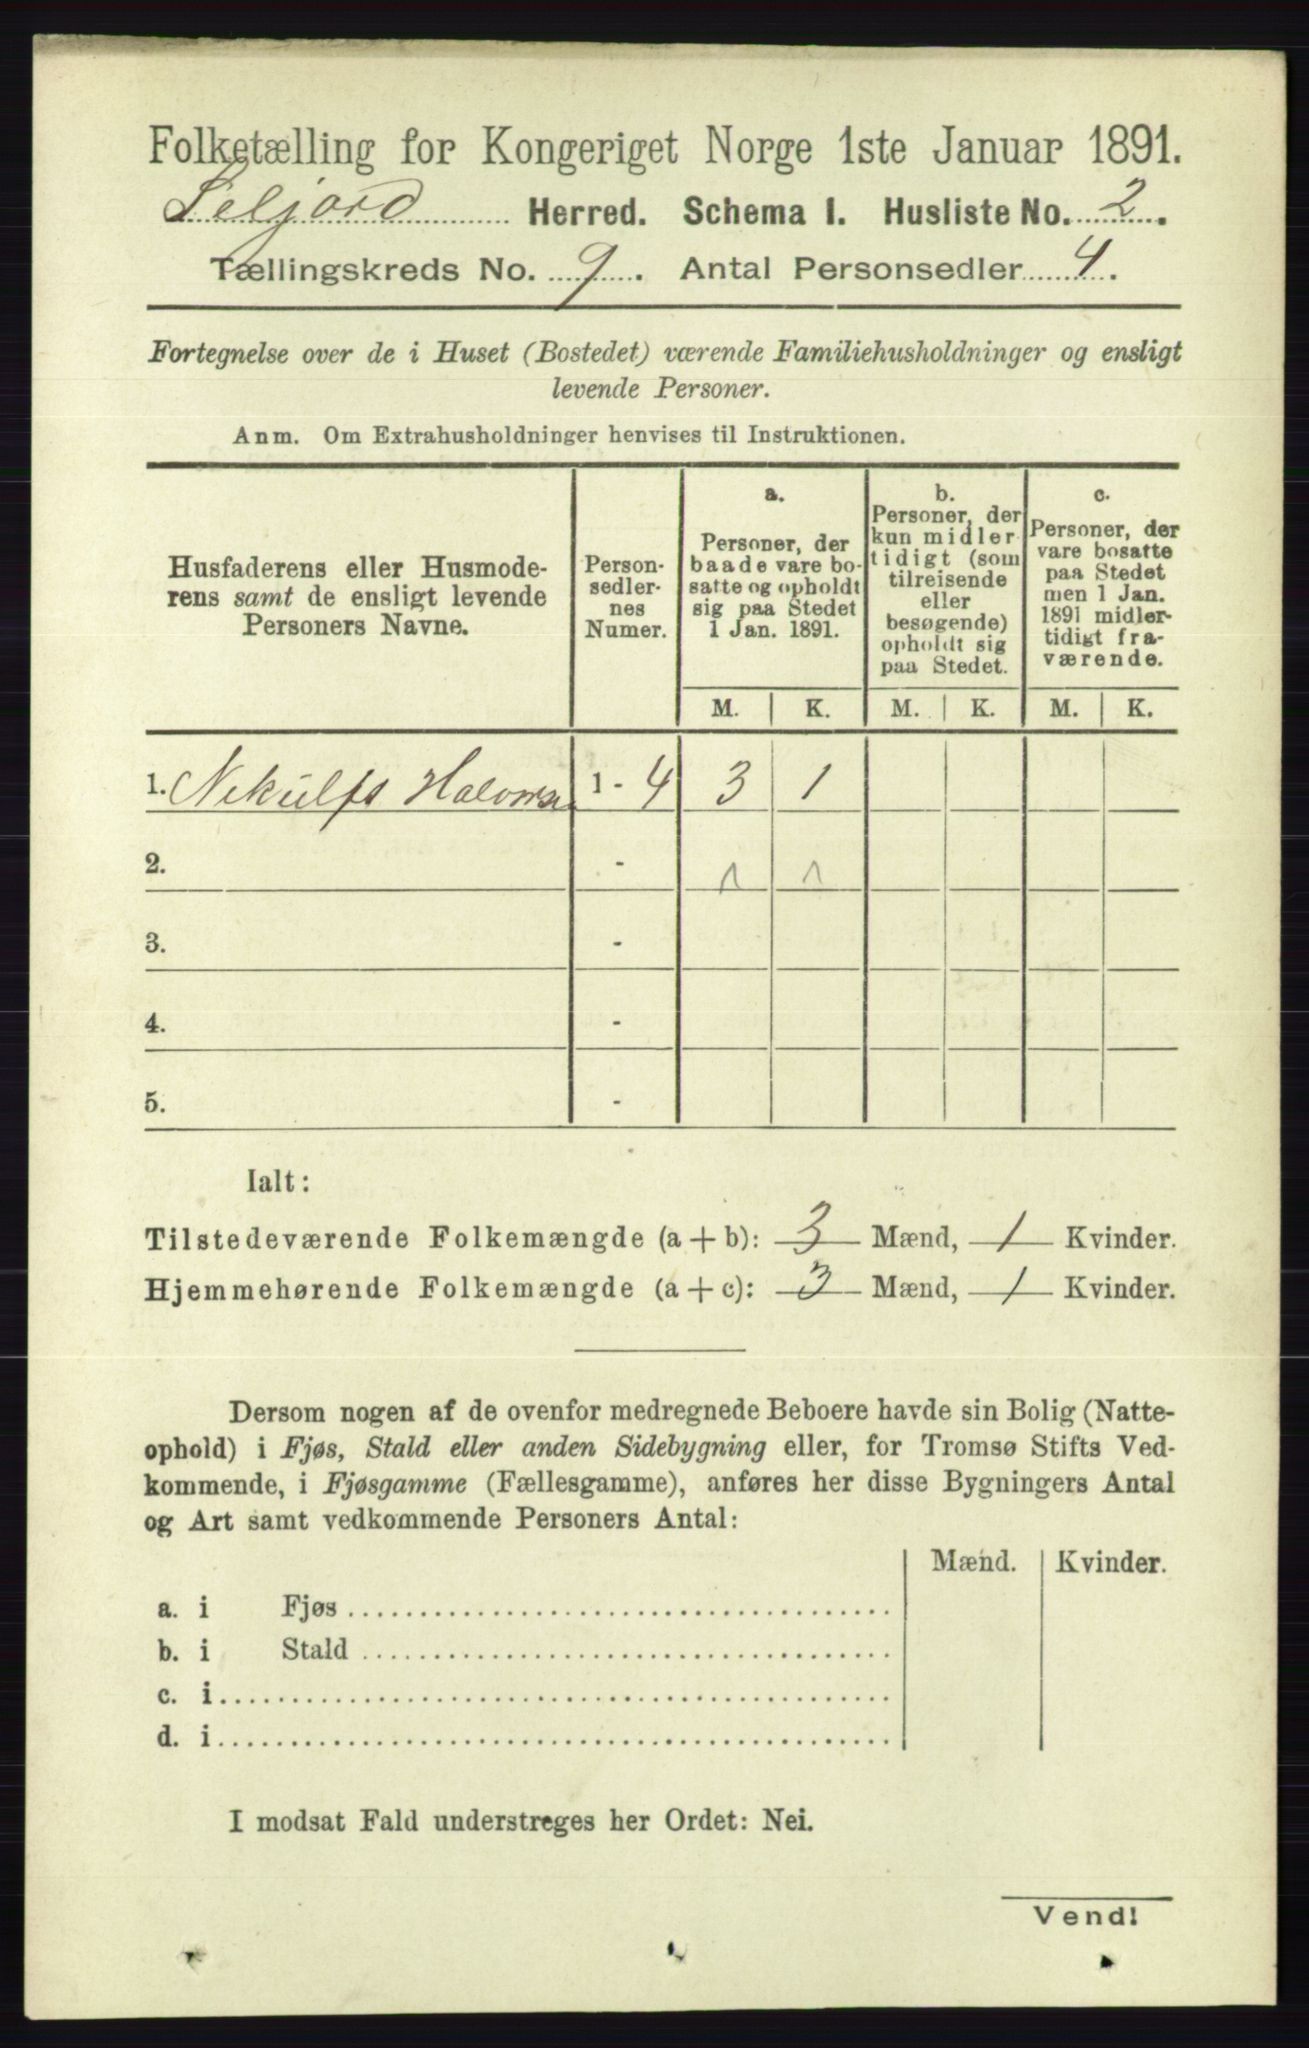 Folketælling for Kongeriget Norge 1ste Januar 1891.
Seljord Herred. Schema I. Husliste No. 2.
Tællingskreds No. 9. Antal Personsedler 4.
Fortegnelse over de i Huset (Bostedet) værende Familiehusholdninger og ensligt
levende Personer.
Anm. Om Extrahusholdninger henvises til Instruktionen.
Husfaderens eller Husmode-
rens samt de ensligt levende
Personers Navne.
Person-
sedler-
nes
Numer.
a.
Personer, der
baade vare bo-
satte og opholdt
sig paa Stedet
1 Jan. 1891.
b.
Personer, der
kun midler-
tidigt (som
tilreisende
eller
besøgende)
opholdt sig
paa Stedet.
c.
Personer, der
vare bosatte
paa Stedet
men 1 Jan.
1891 midler-
tidigt fra-
værende.
M. K. M. K. M. K.
1. Nekulfs 1 - 4 3 1
2. - 1 1
3. -
4. -
5. -
Ialt:
Tilstedeværende Folkemængde (a + b): 3 Mænd, 1 Kvinder.
Hjemmehørende Folkemængde (a + c): 3 Mænd, 1 Kvinder.
Dersom nogen af de ovenfor medregnede Beboere havde sin Bolig (Natte-
ophold) i Fjøs, Stald eller anden Sidebygning eller, for Tromsø Stifts Ved-
kommende, i Fjøsgamme (Fællesgamme), anføres her disse Bygningers Antal
og Art samt vedkommende Personers Antal:
Mænd. Kvinder.
a. i Fjøs
b. i Stald
c. i
d. i
I modsat Fald understreges her Ordet: Nei.
Vend!